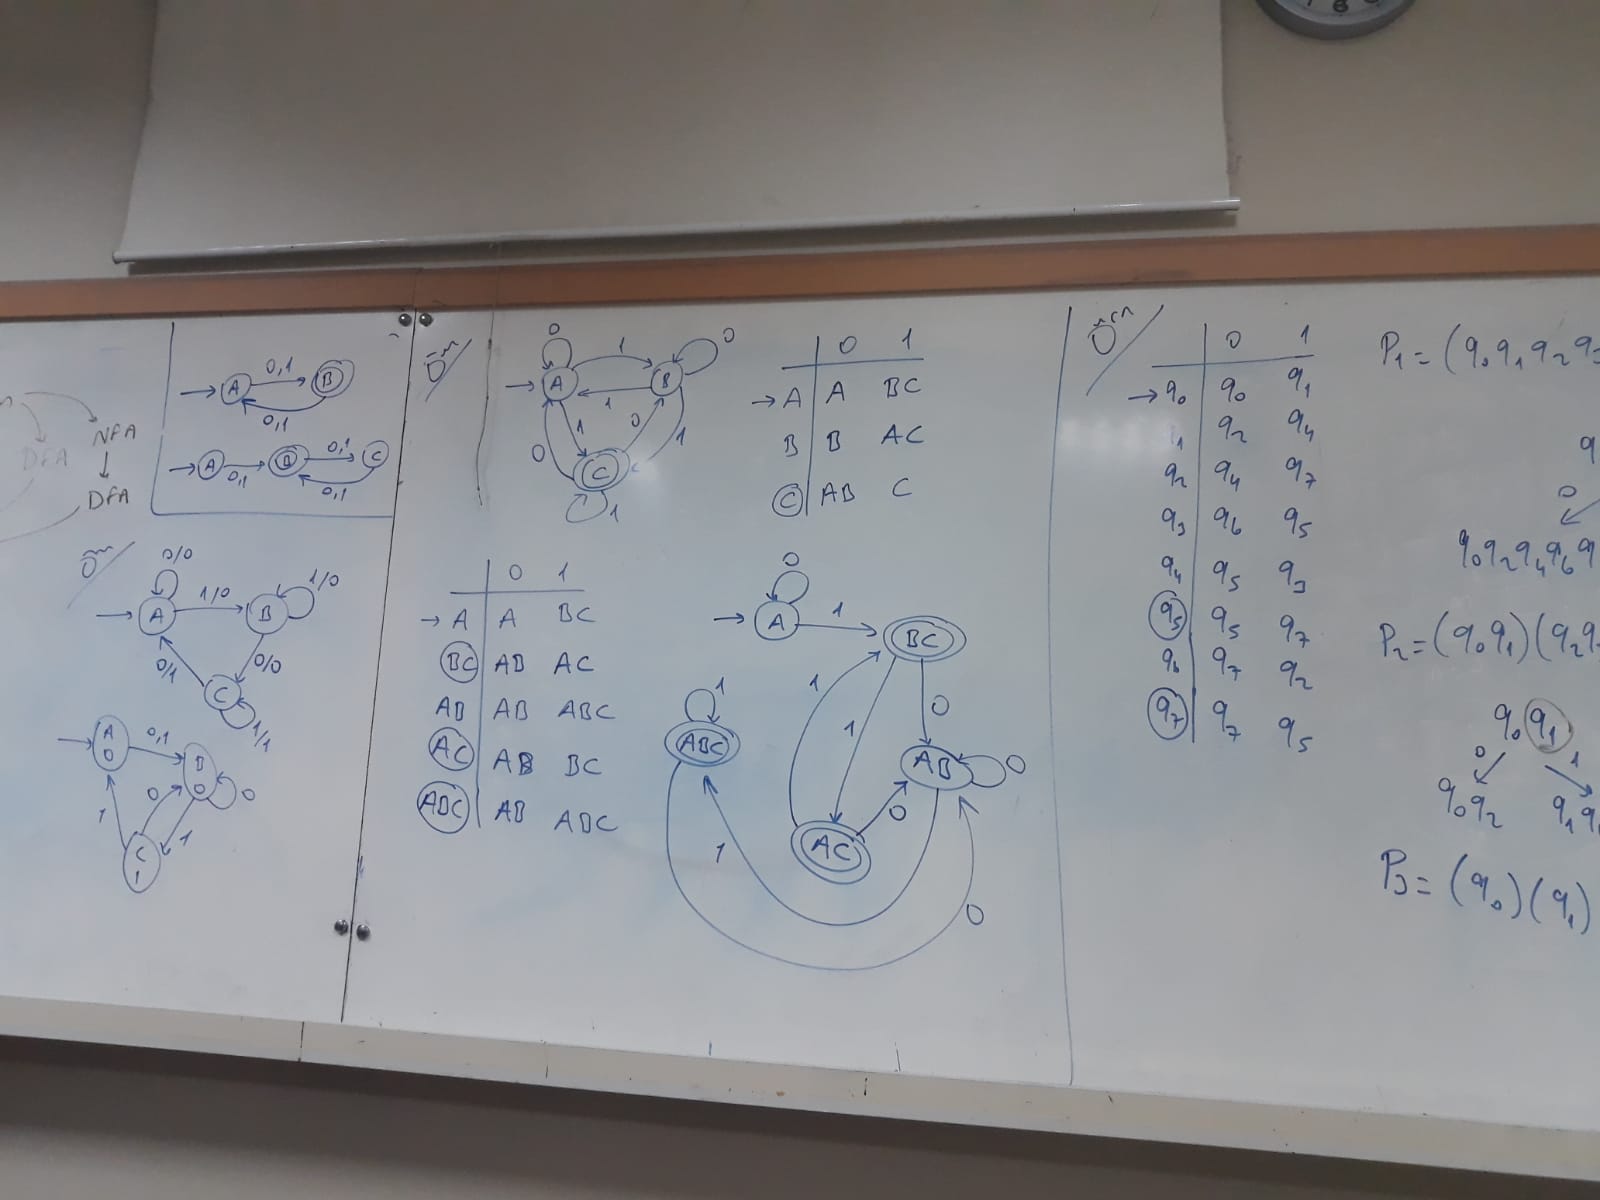 NFA
DFA
DFA
→ A 0,1 B
0,1
→ A 0,1 B 0,1 C
0,1
Ör/
0/0
→ A 1/0 B 1/0
0/1 0/0
C 1/1
→ A 0 0,1 B 0 0
1 0 1
C 1
Ör/
0 1 0
→ A B
1
1 0 1
0
C
1
0 1
→ A A BC
B B AC
C AB C
0 1
→ A A BC
BC AB AC
AB AB ABC
AC AB BC
ABC AB ABC
0
→ A 1 BC
1 1 1 0
ABC AB 0
0
1 AC
0
Örn/
0 1
→ q0 q0 q1
1 q2 q4
q2 q4 q7
q3 q6 q5
q4 q5 q3
q5 q5 q7
q6 q7 q2
q7 q7 q5
P1 = (q0 q1 q2 q3
q
0
q0 q2 q4 q6 q
P2 = (q0 q1) (q2 q
q0 q1
0 1
q0 q2 q1 q
P3 = (q0) (q1)